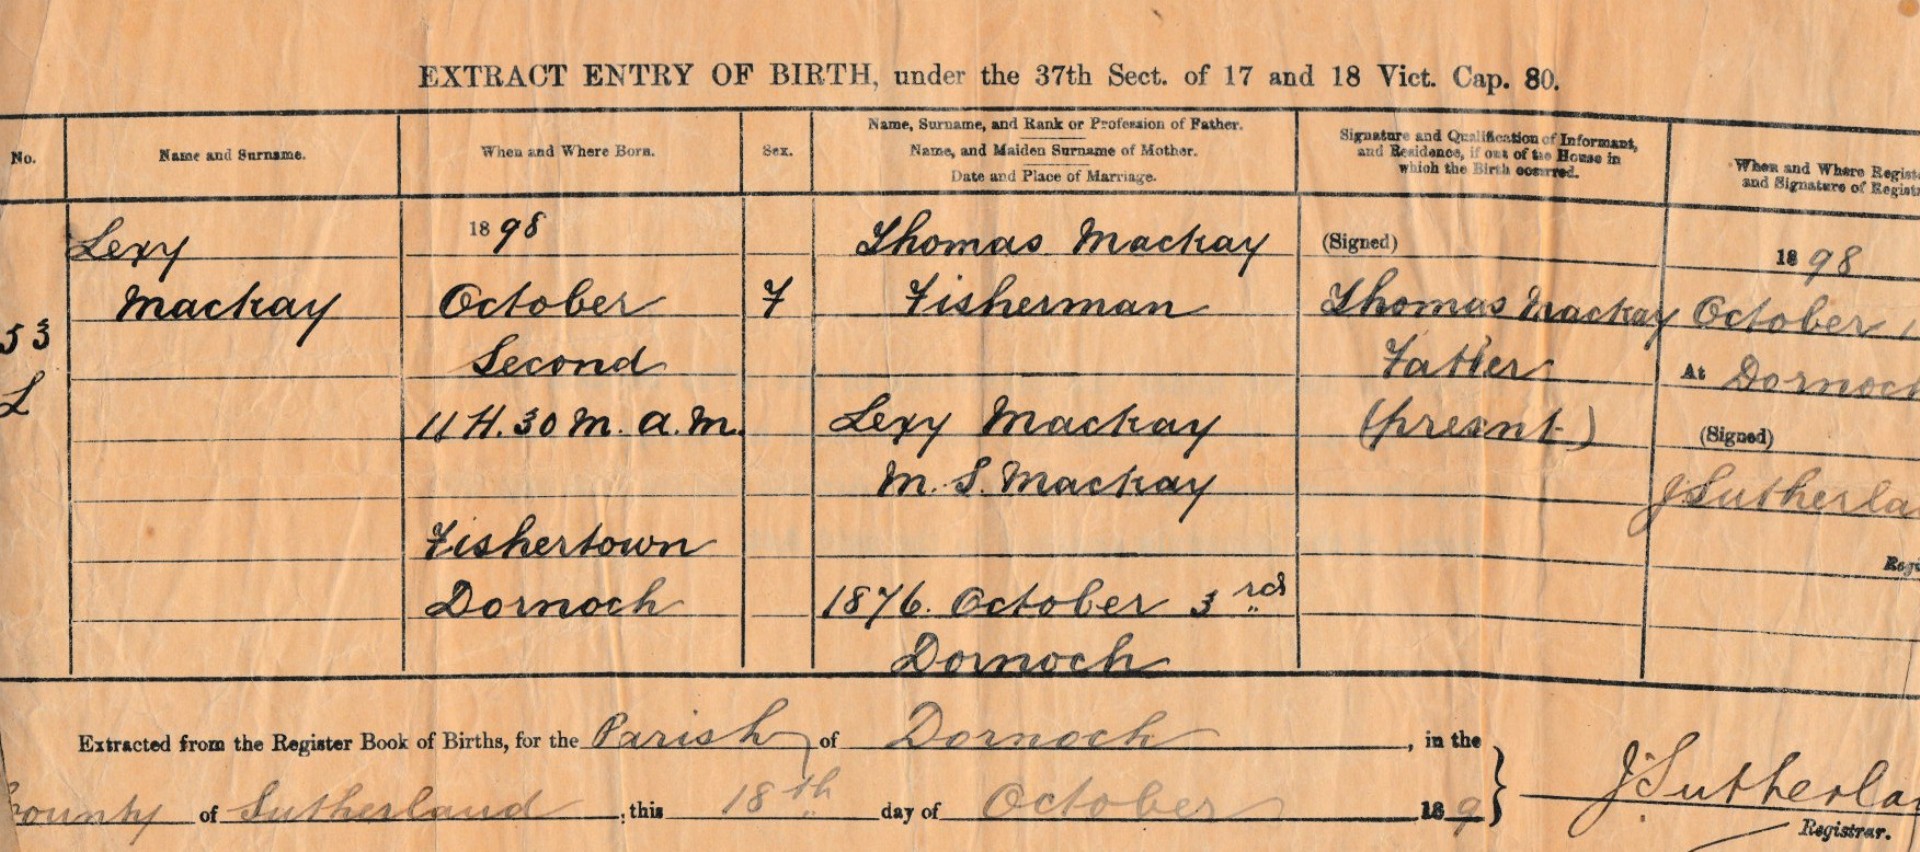 EXTRACT ENTRY OF BIRTH, under the 37th Sect. of 17 and 18 Vict. Cap. 80.
No.
Name and Surname.
When and Where Born.
Sex.
Name, Surname, and Rank or Profession of Father.
Name, and Maiden Surname of Mother.
Date and Place of Marriage.
Signature and Qualification of Informant,
and Residence, if out of the House in
which the Birth occurred.
When and Where Regist
and Signature of Regist
53
L
Lexy
Mackay
1898
October
Second
11 H. 30 M. A.M.
Fishertown
Dornoch
F
Thomas Mackay
Fisherman
Lexy Mackay
M. S. Mackay
1876. October 3rd
Dornoch
(Signed)
Thomas Mackay
Father
(present)
1898
October 1
At Dornoch
(Signed)
J Sutherla
Reg
Extracted from the Register Book of Births, for the Parish of Dornoch, in the
County of Sutherland, this 18th day of October 189
J Sutherla
Registrar.